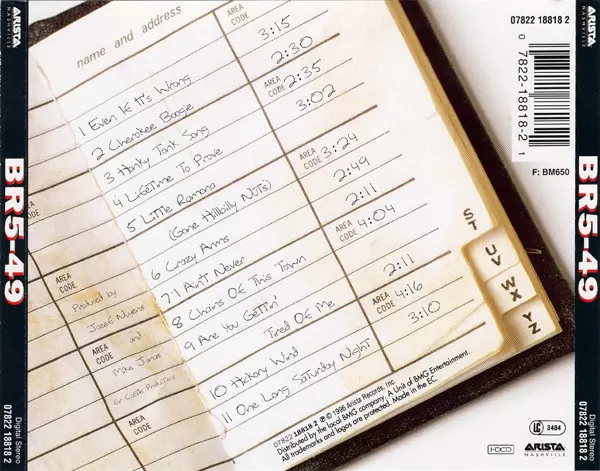 ARISTA
NASHVILLE
BR5-49
Digital Stereo
07822 18818 2
name and address
AREA
CODE
1 Even If It's Wrong
3:15
2 Cherokee Boogie
2:30
AREA
CODE
3 Honky Tonk Song
2:35
4 Lifetime To Prove
3:02
5 Little Ramona
(Gone Hillbilly Nuts)
AREA
CODE
3:24
6 Crazy Arms
2:49
7 I Ain't Never
2:11
8 Chains Of This Town
AREA
CODE
4:04
9 Are You Gettin'
Tired Of Me
2:11
10 Hickory Wind
AREA
CODE
4:16
11 One Long Saturday Night
3:10
AREA
CODE
AREA
CODE
Produced by
Jozef Nuyens
AREA
CODE
and
Mike Janas
AREA
CODE
ST
UV
WX
YZ
07822 18818 2 ℗ © 1996 Arista Records, Inc.
Distributed by the local BMG company. A Unit of BMG Entertainment.
All trademarks and logos are protected. Made in the EC.
07822 18818 2
0 7822-18818-2 1
F: BM650
LC 3484
HDCD
ARISTA
NASHVILLE
ARISTA
NASHVILLE
BR5-49
Digital Stereo
07822 18818 2